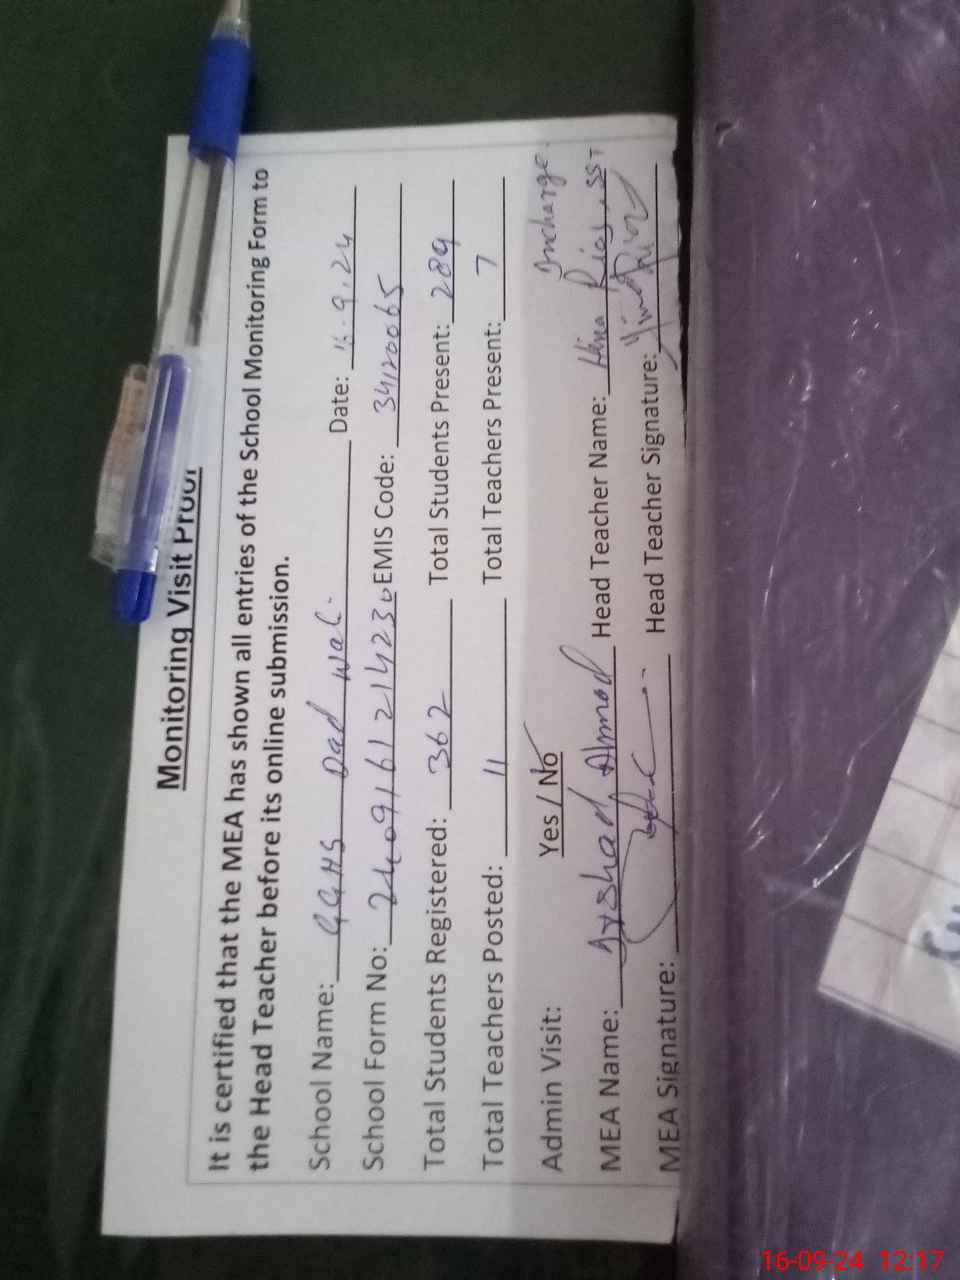 Monitoring Visit Proof
It is certified that the MEA has shown all entries of the School Monitoring Form to
the Head Teacher before its online submission.
School Name: GGHS Dad Wali. Date: 16.9.24
School Form No: EMIS Code: 34120065
Total Students Registered: 362 Total Students Present: 289
Total Teachers Posted: 11 Total Teachers Present: 7
Admin Visit: Yes / No Incharge.
MEA Name: Irshad Ahmad Head Teacher Name: Hina Riaz, SST
MEA Signature: Head Teacher Signature:
16-09-24 12:17